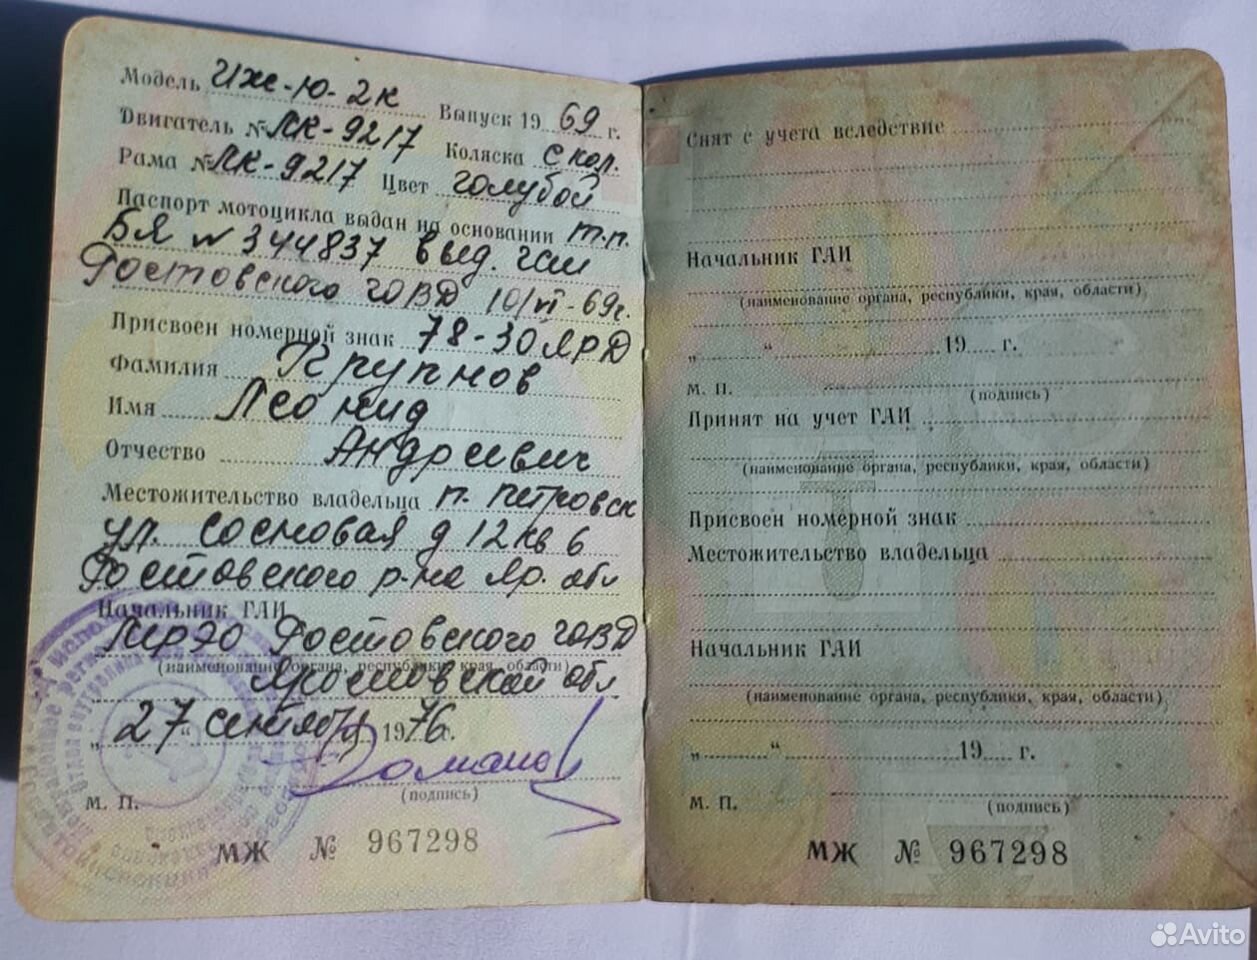 Модель Иж-Ю-2к Выпуск 1969 г.
Двигатель № ЛК-9217 Коляска с кол.
Рама № ЛК-9217 Цвет голубой
Паспорт мотоцикла выдан на основании т.п.
БЯ № 344837 выд. гаи
Ростовского ГОВД 10/VI-69г.
Присвоен номерной знак 78-30 ЯРД
Фамилия Крупнов
Имя Леонид
Отчество Андреевич
Местожительство владельца п. Петровск
ул. Сосновая д 12 кв 6
Ростовского р-на Яр. обл
Начальник ГАИ
МРЭО Ростовского ГОВД
(наименование органа, республики, края, области)
Ярославской обл
„27“ сентября 1976 г.
Романов
М. П. (подпись)
МЖ № 967298
Снят с учета вследствие
Начальник ГАИ
(наименование органа, республики, края, области)
„ “ 19 г.
М. П. (подпись)
Принят на учет ГАИ
(наименование органа, республики, края, области)
Присвоен номерной знак
Местожительство владельца
Начальник ГАИ
(наименование органа, республики, края, области)
„ “ 19 г.
М. П. (подпись)
МЖ № 967298
Avito